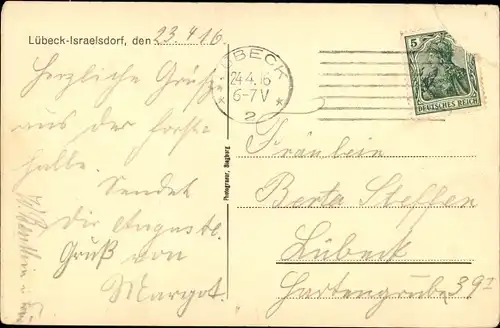 Lübeck-Israelsdorf, den 23.4.16
Herzliche Grüße
aus der Forst
halle. Sendet
Dir Auguste.
Gruß von
Margot.
LÜBECK
24.4.16
6-7V
* 2 *
5
DEUTSCHES REICH
Photogravur, Siegburg
Fräulein
Berta Steffen
Lübeck
Hartengrube 39 I